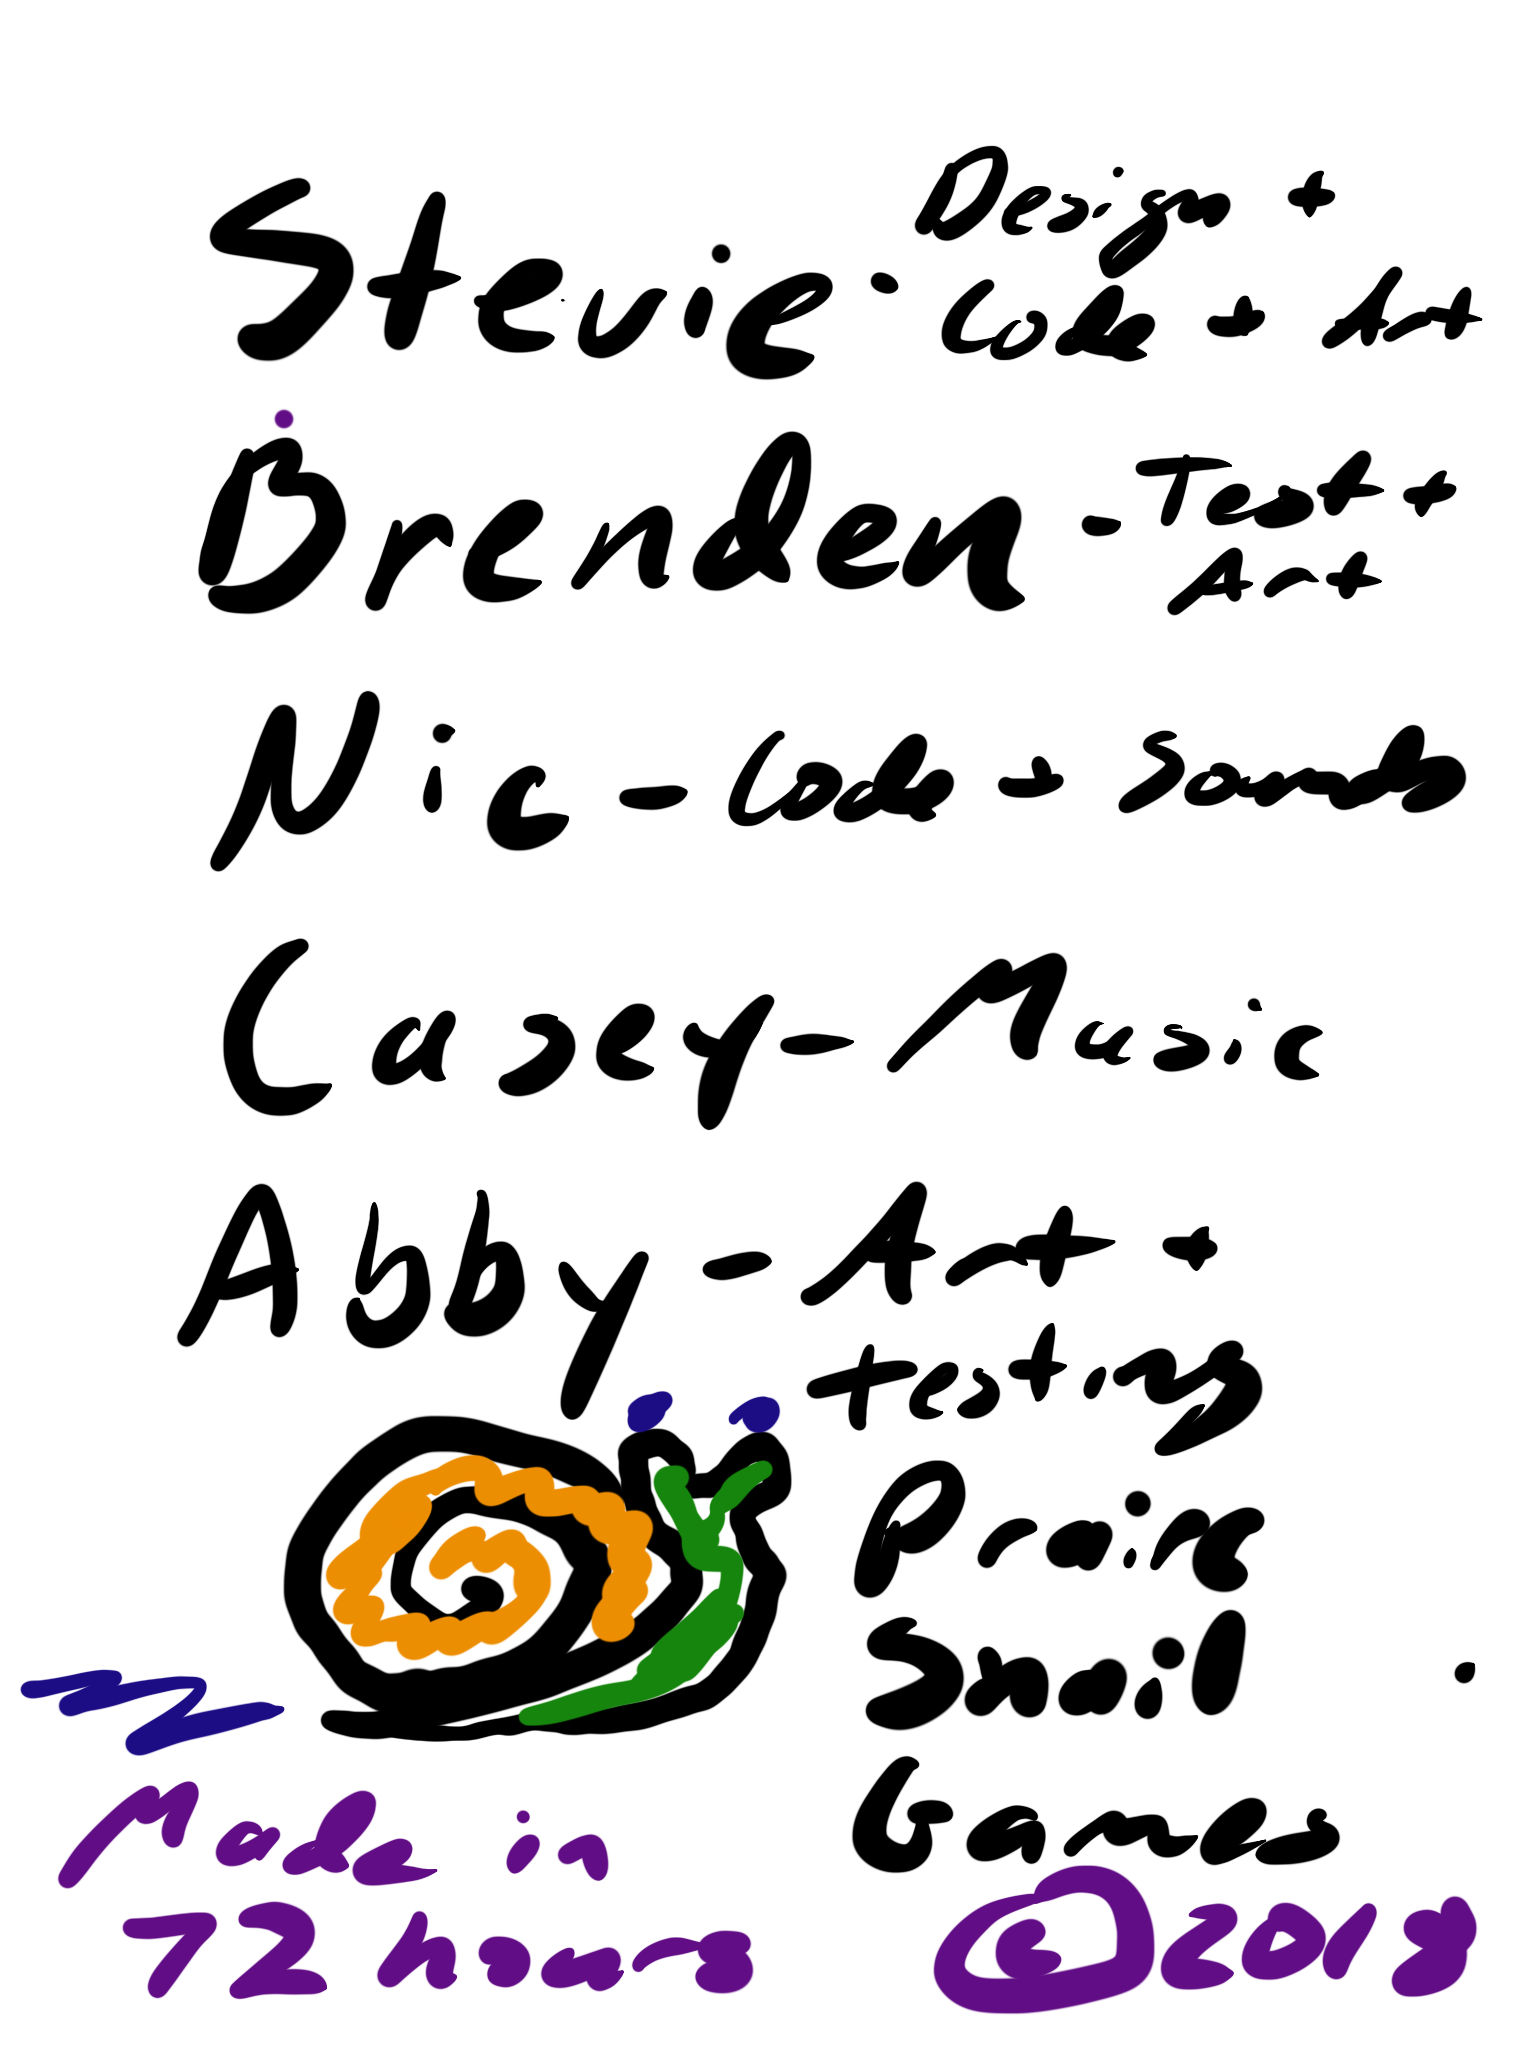 Stevie - Design +
Code + Art
Brenden - Test +
Art
Nic - Code + Sounds
Casey - Music
Abby - Art +
testing
Praire
Snail
Games
Made in
72 hours
© 2018